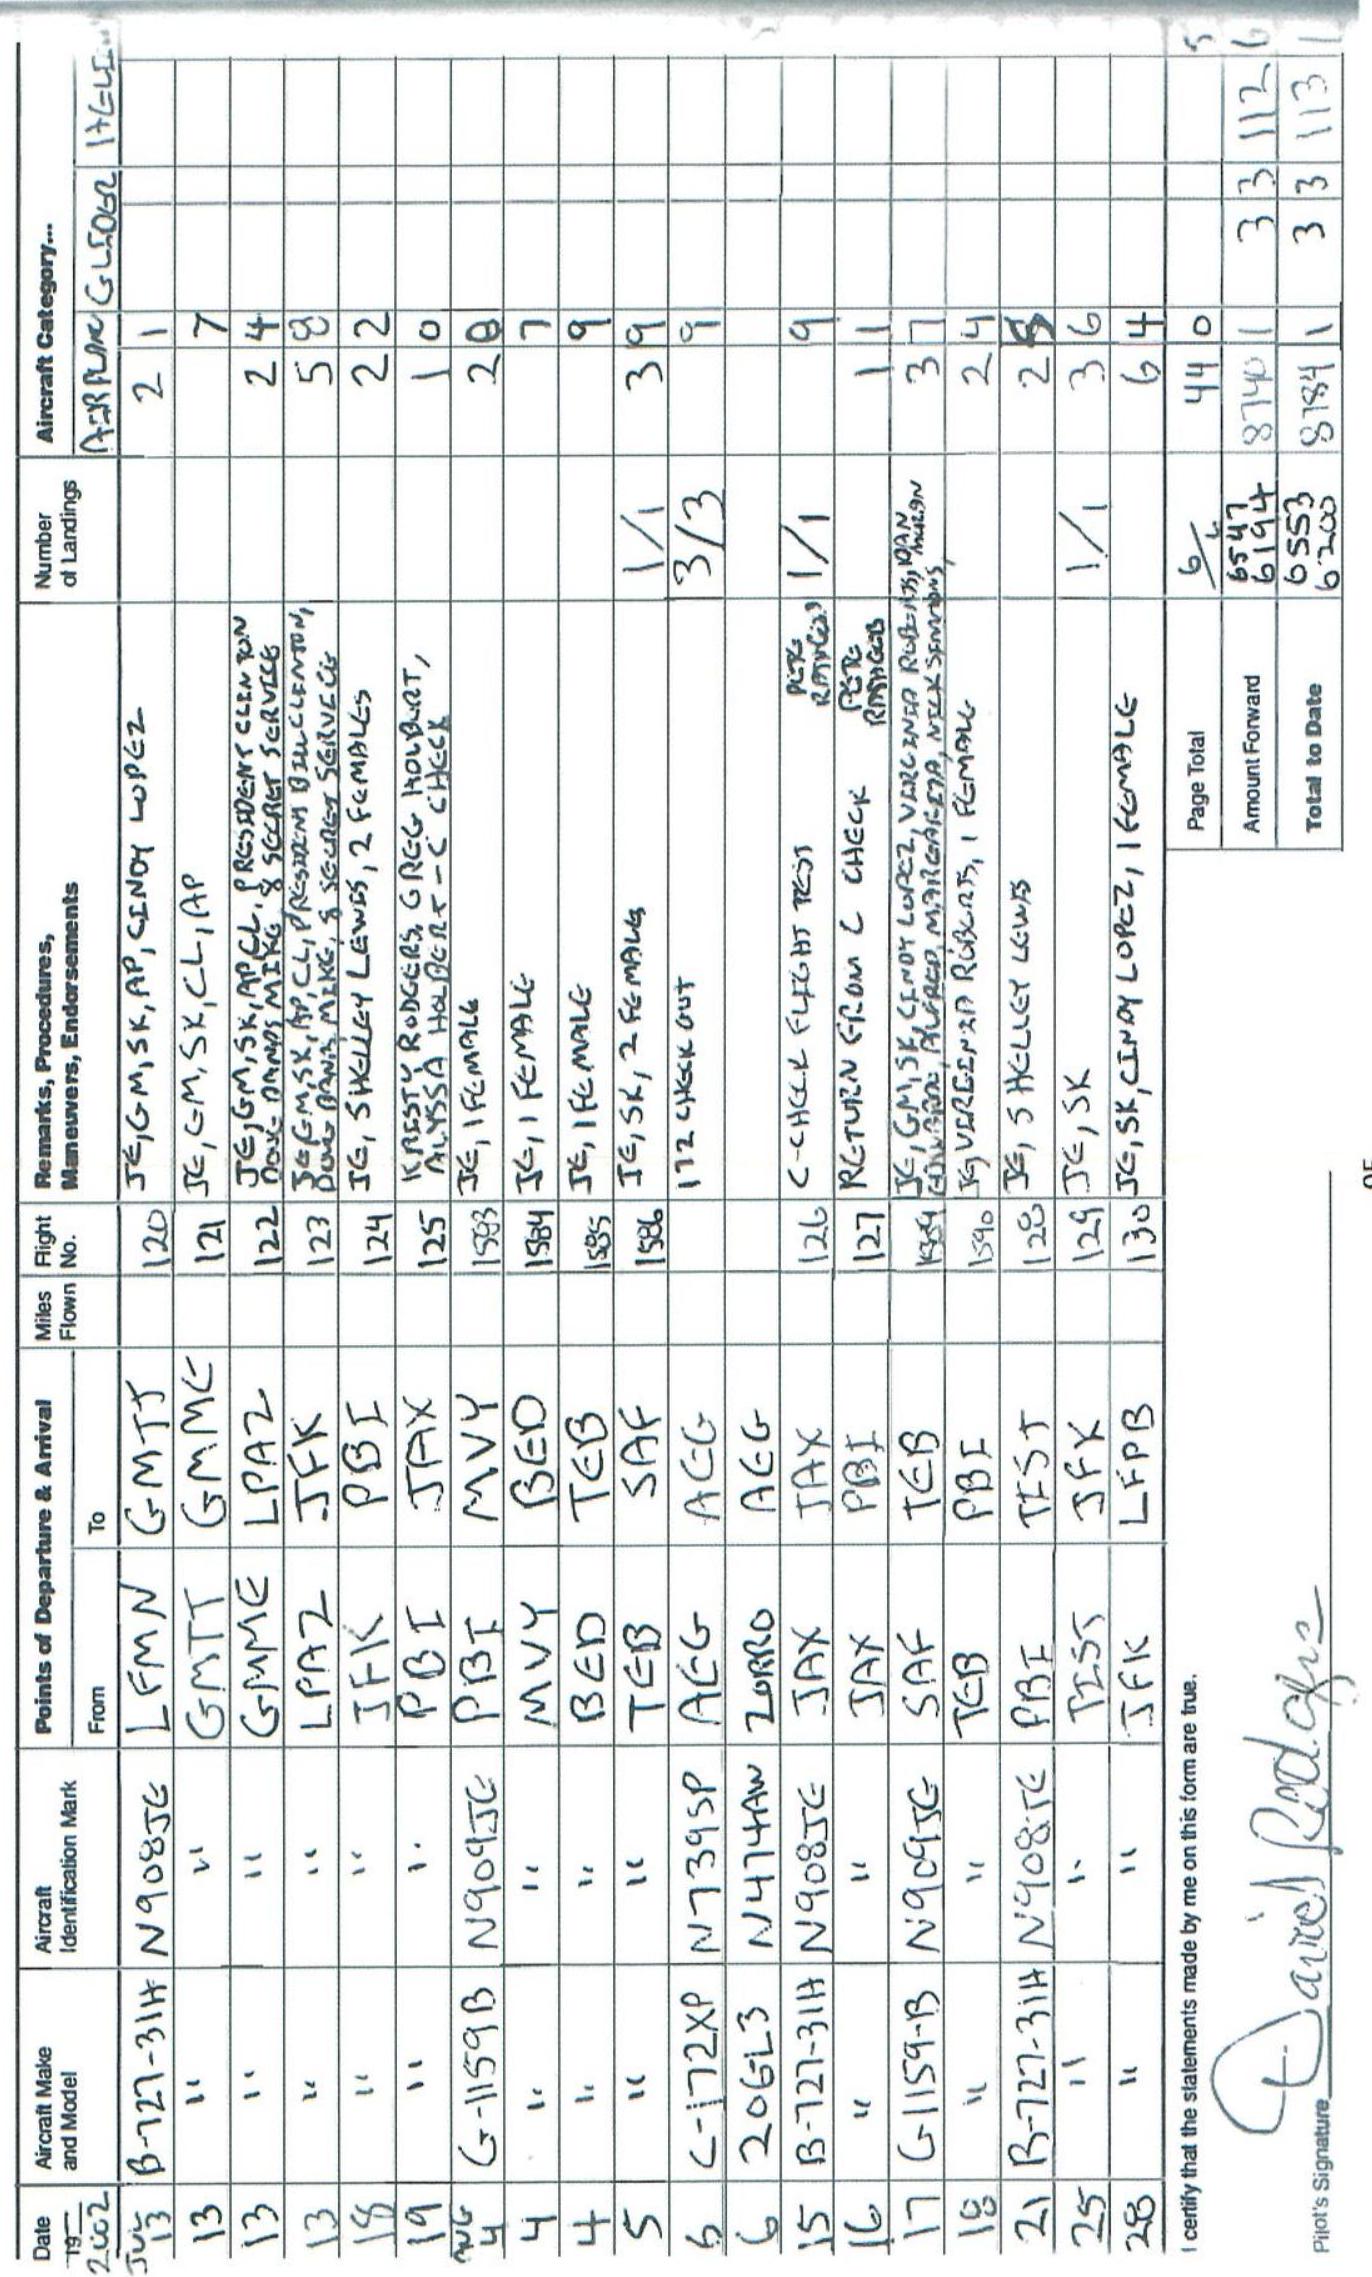 Date 19 2002 Aircraft Make and Model Aircraft Identification Mark Points of Departure & Arrival From To Miles Flown Flight No. Remarks, Procedures, Maneuvers, Endorsements Number of Landings Aircraft Category... AIRPLANE GLIDER HELI
JUL 13 B-727-31H N908JE LFMN GMTT 120 JE, GM, SK, AP, CINDY LOPEZ 2 1
13 " " GMTT GMME 121 JE, GM, SK, CL, AP 7
13 " " GMME LPAZ 122 JE, GM, SK, AP, CL, PRESIDENT CLINTON DOUG BAND, MIKE, 8 SECRET SERVICE 2 4
13 " " LPAZ JFK 123 JE, GM, SK, AP, CL, PRESIDENT BILL CLINTON, DOUG BAND, MIKE, 8 SECRET SERVICE 5 8
18 " " JFK PBI 124 JE, SHELLEY LEWIS, 2 FEMALES 2 2
19 " " PBI JAX 125 KRISTY RODGERS, GREG HOLBERT, ALYSSA HOLBERT - C CHECK 1 0
AUG 4 G-1159B N909JE PBI MVY 1583 JE, 1 FEMALE 2 8
4 " " MVY BED 1584 JE, 1 FEMALE 7
4 " " BED TEB 1585 JE, 1 FEMALE 9
5 " " TEB SAF 1586 JE, SK, 2 FEMALES 1/1 3 9
6 C-172XP N739SP AEG AEG 172 CHECK OUT 3/3 9
6 206L3 N474AW ZORRO AEG
15 B-727-31H N908JE JAX JAX 126 C-CHECK FLIGHT TEST PETE RATHGEB 1/1 9
16 " " JAX PBI 127 RETURN FROM C CHECK PETE RATHGEB 1 1
17 G-1159-B N909JE SAF TEB 1589 JE, GM, SK, CINDY LOPEZ, VIRGINIA ROBERTS, ALFREDO, MARGARITA, NICK SIMMONS, 3 7
18 " " TEB PBI 1590 JE, VIRGINIA ROBERTS, 1 FEMALE 2 4
21 B-727-31H N908JE PBI TIST 128 JE, SHELLEY LEWIS 2 5
25 " " TIST JFK 129 JE, SK 1/1 3 6
28 " " JFK LFPB 130 JE, SK, CINDY LOPEZ, 1 FEMALE 6 4
I certify that the statements made by me on this form are true. Page Total 6/6 44 0 5
Amount Forward 6547 6194 8740 1 3 3 112 6
Pilot's Signature David Rodgers Total to Date 6553 6200 8784 1 3 3 113 1